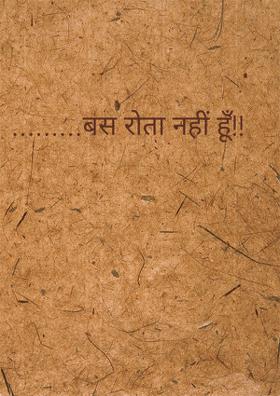 .........बस रोता नहीं हूँ!!